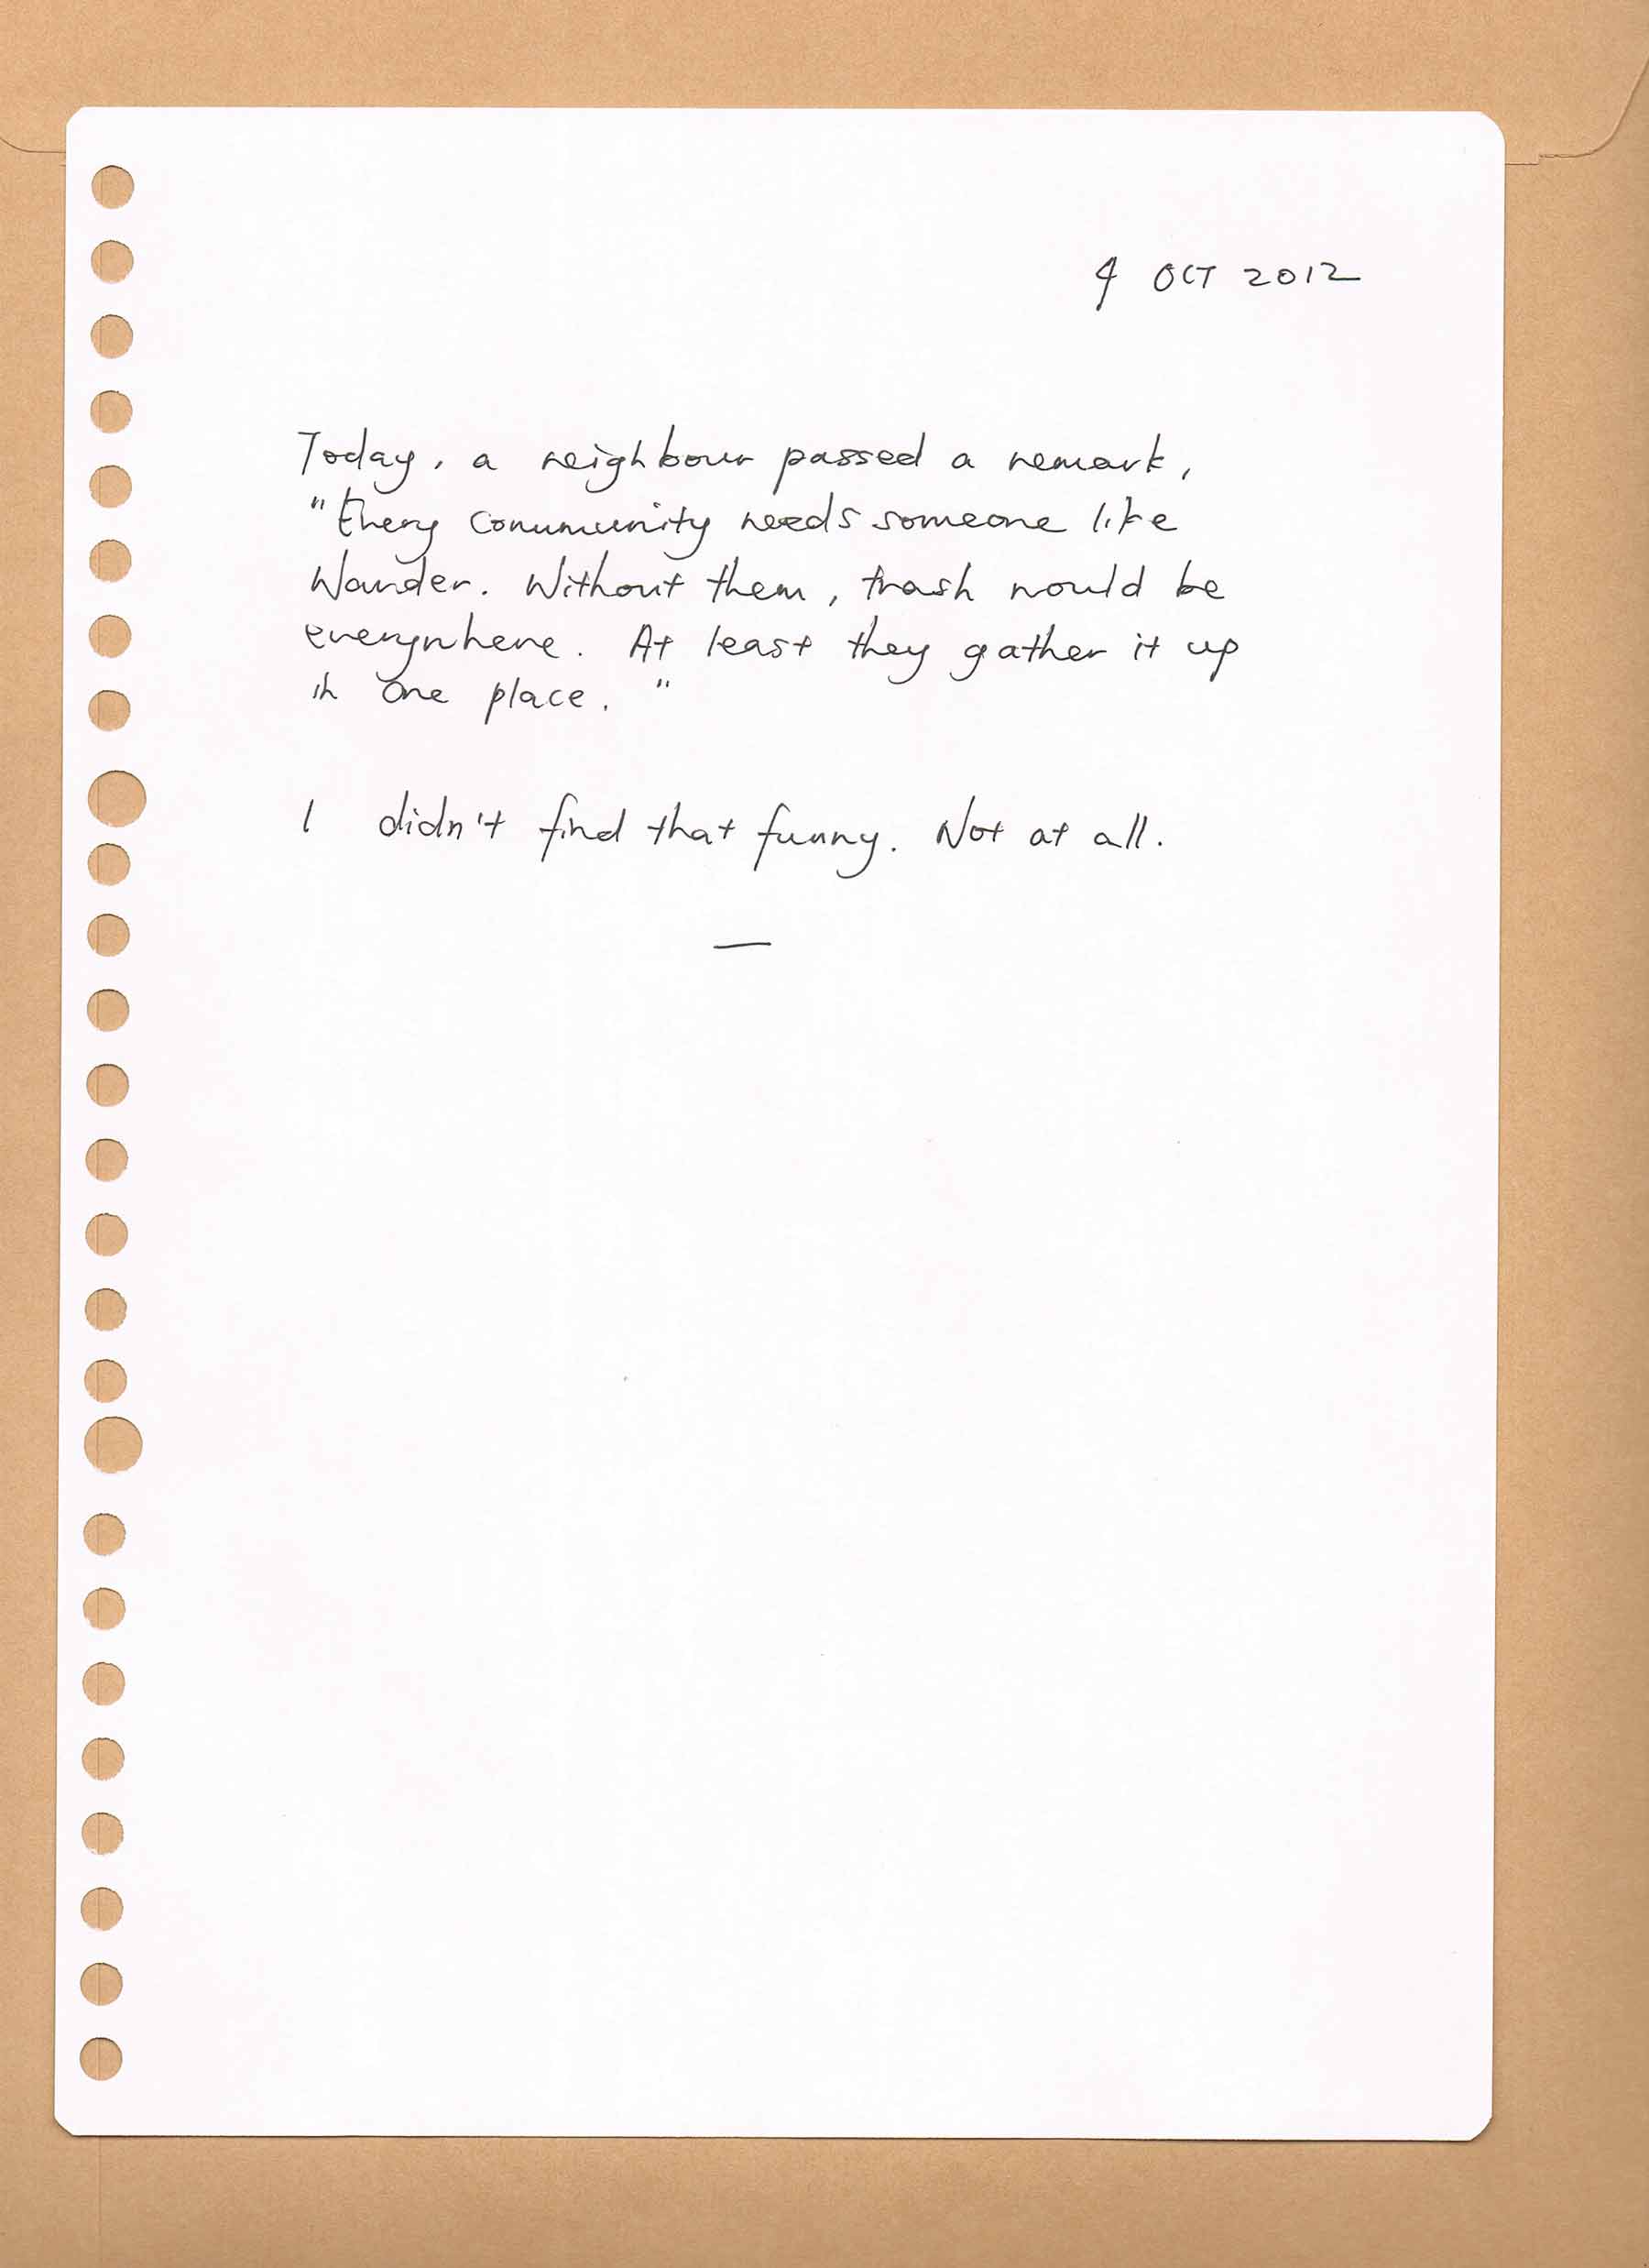 4 OCT 2012
Today, a neighbour passed a remark,
"Every community needs someone like
Wander. Without them, trash would be
everywhere. At least they gather it up
in one place."
I didn't find that funny. Not at all.
—